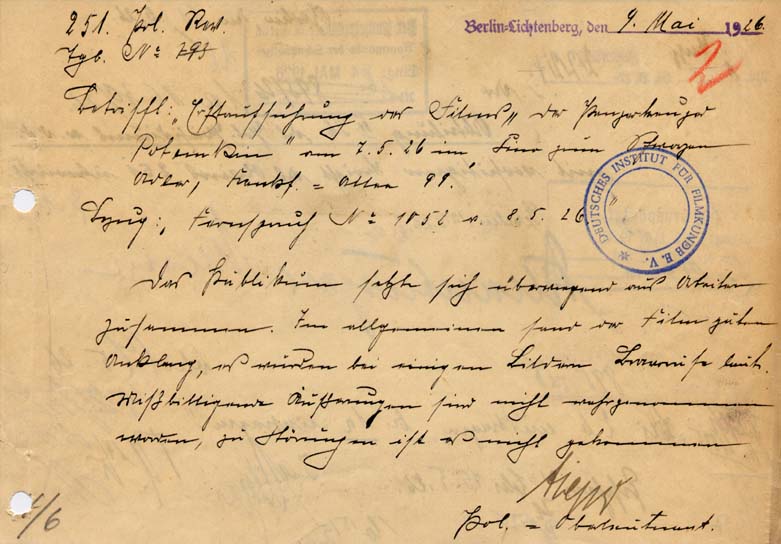 251. Pol. Rev.
Tgb. № 793
Berlin-Lichtenberg, den 9. Mai 1926.
2
Betrifft: „Erstaufführung des Films „ der Panzerkreuzer
Potemkin" am 7.5.26 im Kino zum Schwarzen
Adler, Frankf. = Allee 99.
Bezug: Fernspruch № 1852 v. 8.5.26
DEUTSCHES INSTITUT FÜR FILMKUNDE E.V.
Das Publikum setzte sich überwiegend aus Arbeitern
zusammen. Im allgemeinen fand der Film guten
Anklang, es wurden bei einigen Bildern Bravorufe laut.
Mißbilligende Äußerungen sind nicht wahrgenommen
worden, zu Störungen ist es nicht gekommen
Pol. = Oberleutnant.
4/6